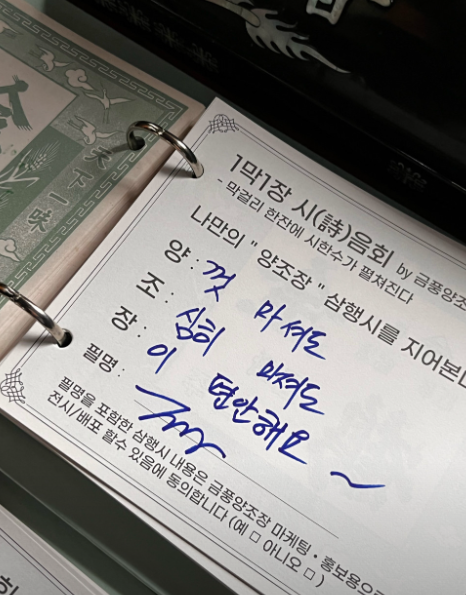 天下一味
1막1장 시(詩)음회 by 금풍양조
- 막걸리 한잔에 시한수가 펼쳐진다
나만의 " 양조장 " 삼행시를 지어본
양 : 껏 마셔도
조 : 심히 마셔도
장 : 이 편안해요 ~
필명 :
필명을 포함한 삼행시 내용은 금풍양조장 마케팅 • 홍보용으로
전시/배포 할수 있음에 동의합니다 (예 □ 아니오 □ )